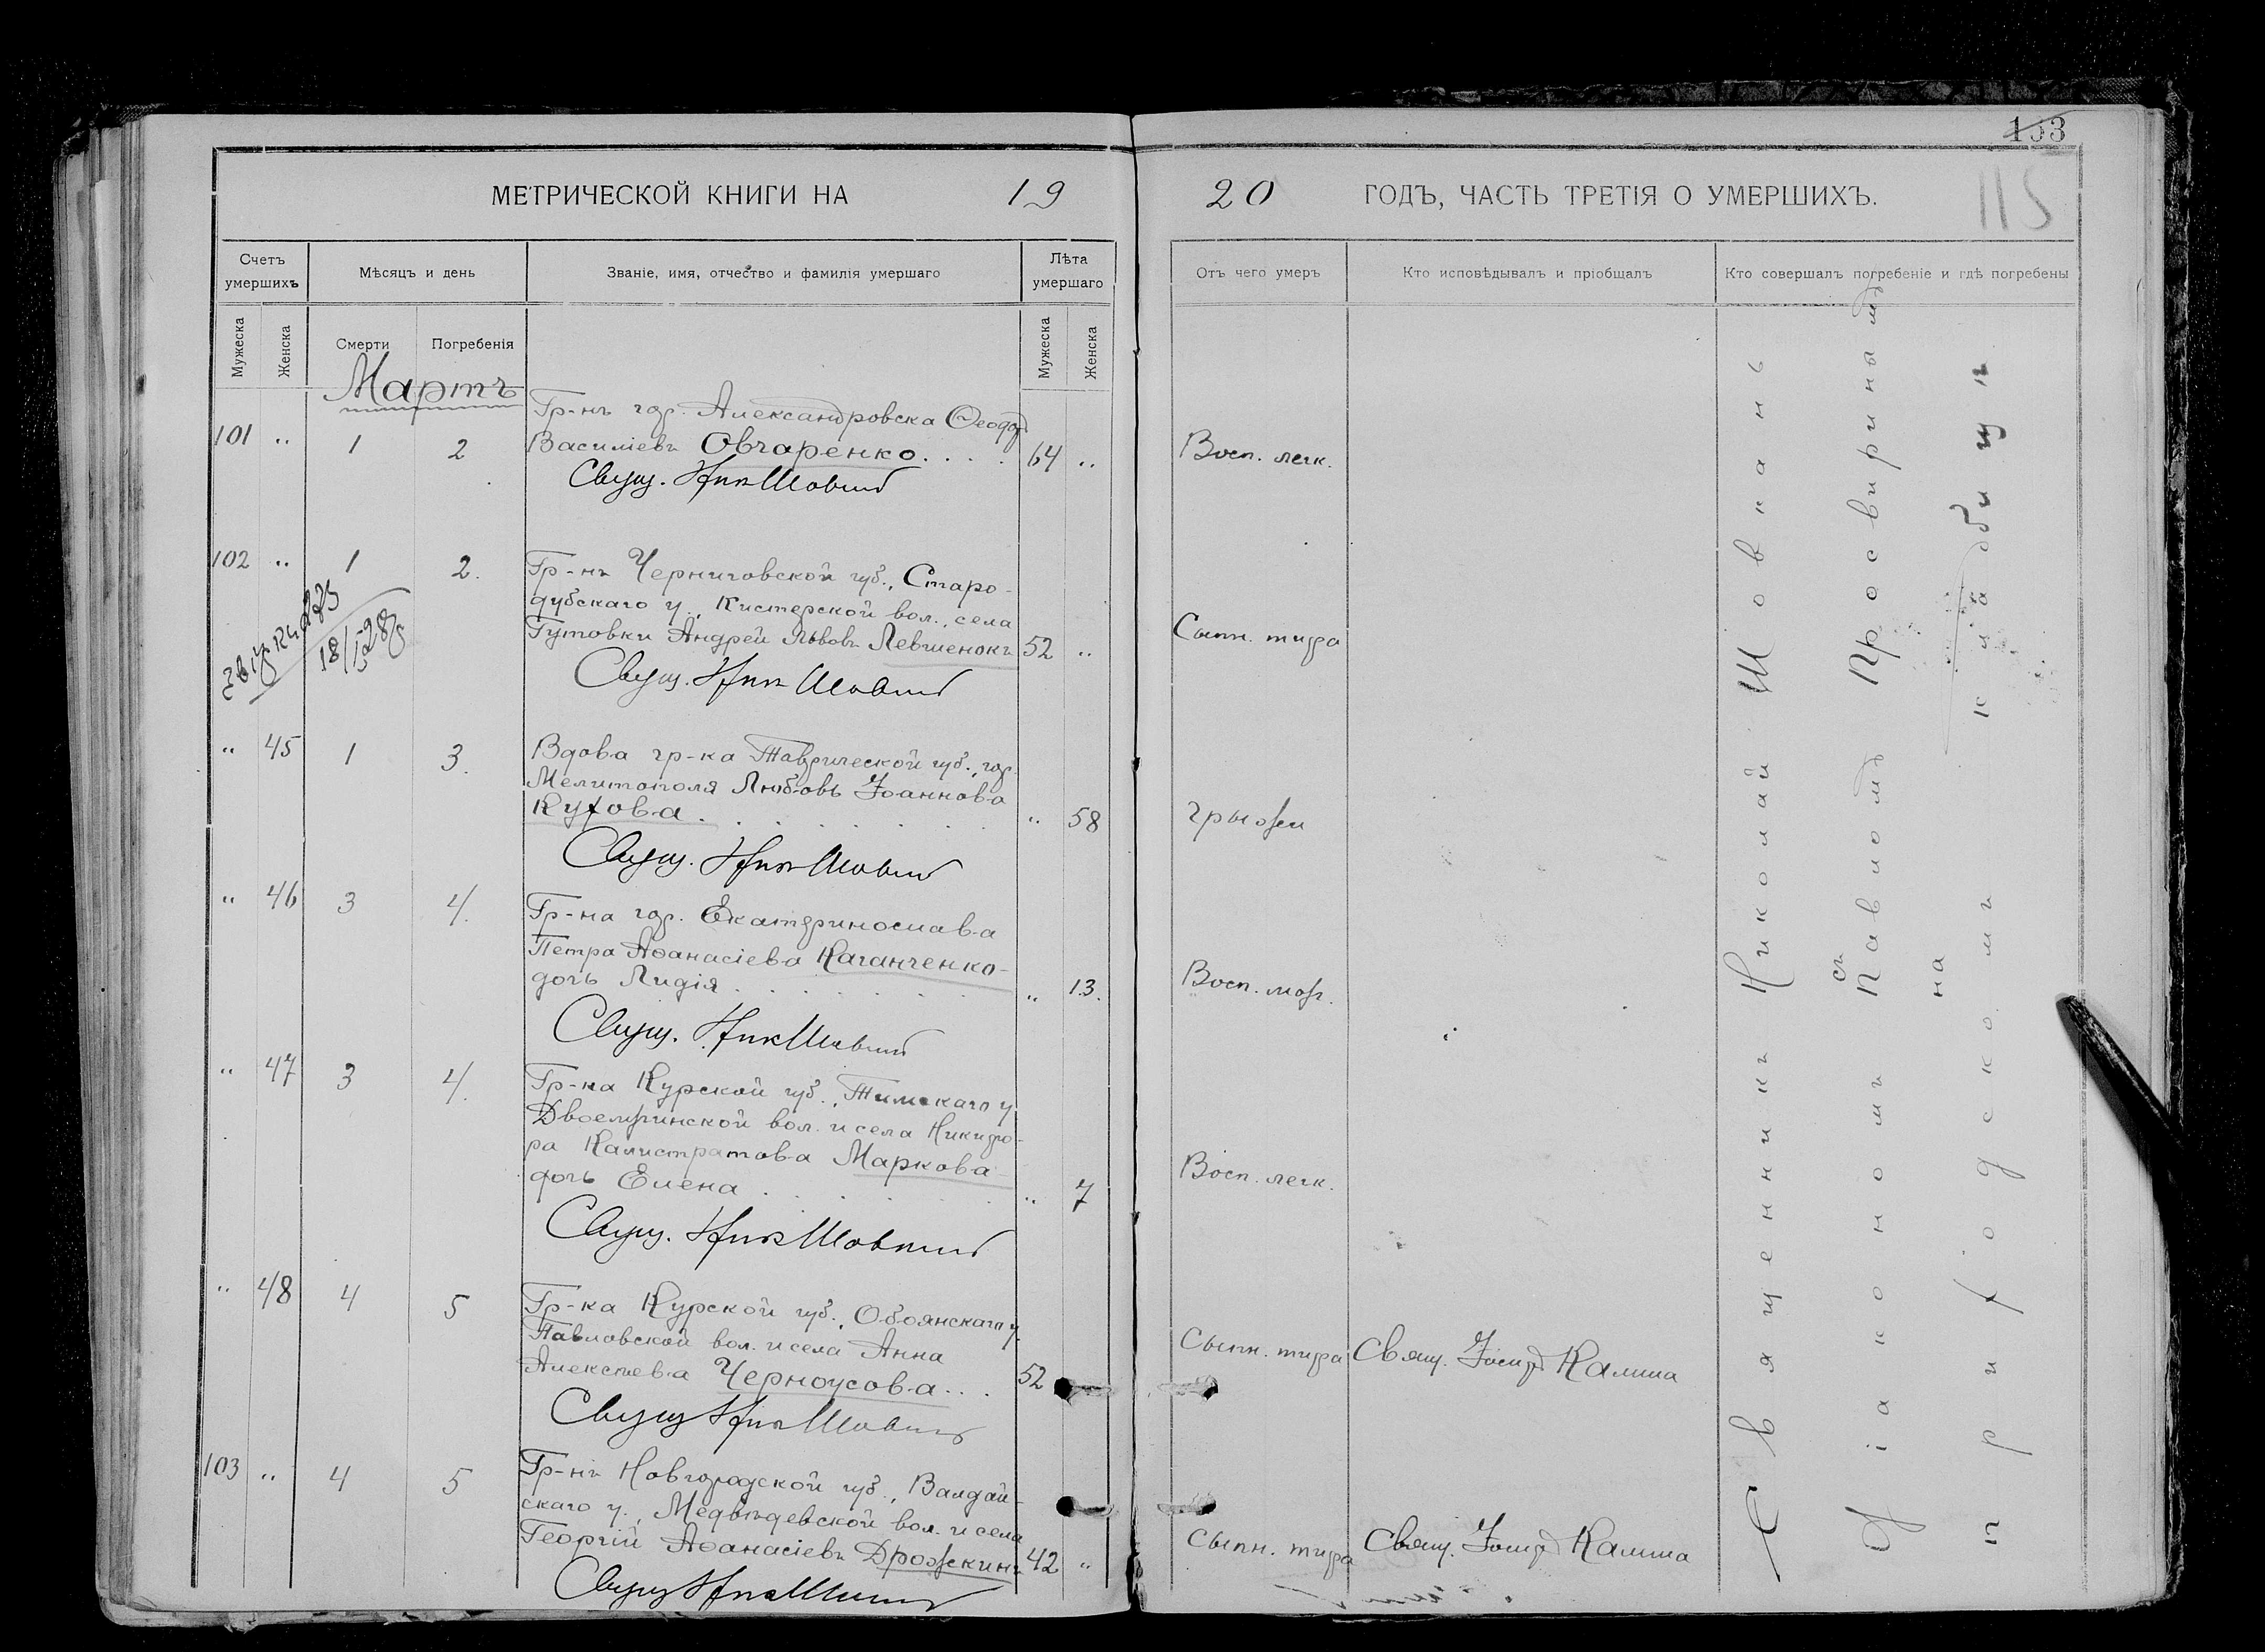 153
115
МЕТРИЧЕСКОЙ КНИГИ НА 19 20 ГОДЪ, ЧАСТЬ ТРЕТІЯ О УМЕРШИХЪ.
Счетъ умершихъ
Мѣсяцъ и день
Званіе, имя, отчество и фамилія умершаго
Лѣта умершаго
Отъ чего умеръ
Кто исповѣдывалъ и пріобщалъ
Кто совершалъ погребеніе и гдѣ погребены
Мужеска
Женска
Смерти
Погребенія
Мужеска
Женска
Мартъ
Гр-нъ гор. Александровска Ѳеодоръ
101 " 1 2 Василіевъ Овчаренко.... 64 " Восп. легк.
Свящ. Ник Шовкань
102 " 1 2. Гр-нъ Черниговской губ., Старо-
дубскаго у., Кистерской вол., села
Гутовки Андрей Львовъ Левшенокъ 52 " Сыпн. тифа
18/I-28
Свящ. Ник Шовкань
" 45 1 3. Вдова гр-ка Таврической губ., гор.
Мелитополя Любовь Іоаннова
Кухова. " 58 грыжи
Свящ. Ник Шовкань
" 46 3 4. Гр-на гор. Екатеринослава
Петра Аѳанасіева Каганченко-
дочь Лидія " 13. Восп. мозг.
Свящ. Ник Шовкань
" 47 3 4. Гр-на Курской губ., Тимскаго у.
вол. и села Никифо-
ра Калистратова Маркова-
дочь Елена " 7 Восп. легк.
Свящ. Ник Шовкань
" 48 4 5 Гр-ка Курской губ., Обоянскаго у.
Павловской вол. и села Анна
Алексѣева Черноусова... 52 Сыпн. тифа Свящ. Іосифъ Калина
Свящ Ник Шовкань
103 " 4 5 Гр-нъ Новгородской губ., Валдай-
скаго у., Медвѣдевской вол. и села
Георгій Аѳанасіевъ Дрожжинъ 42 " Сыпн. тифа Свящ. Іосифъ Калина
Свящ Ник Шовкань
Священникъ Николай Шовкань
съ
Діакономъ Павломъ Просвиринымъ
на
при городскомъ кладбищѣ